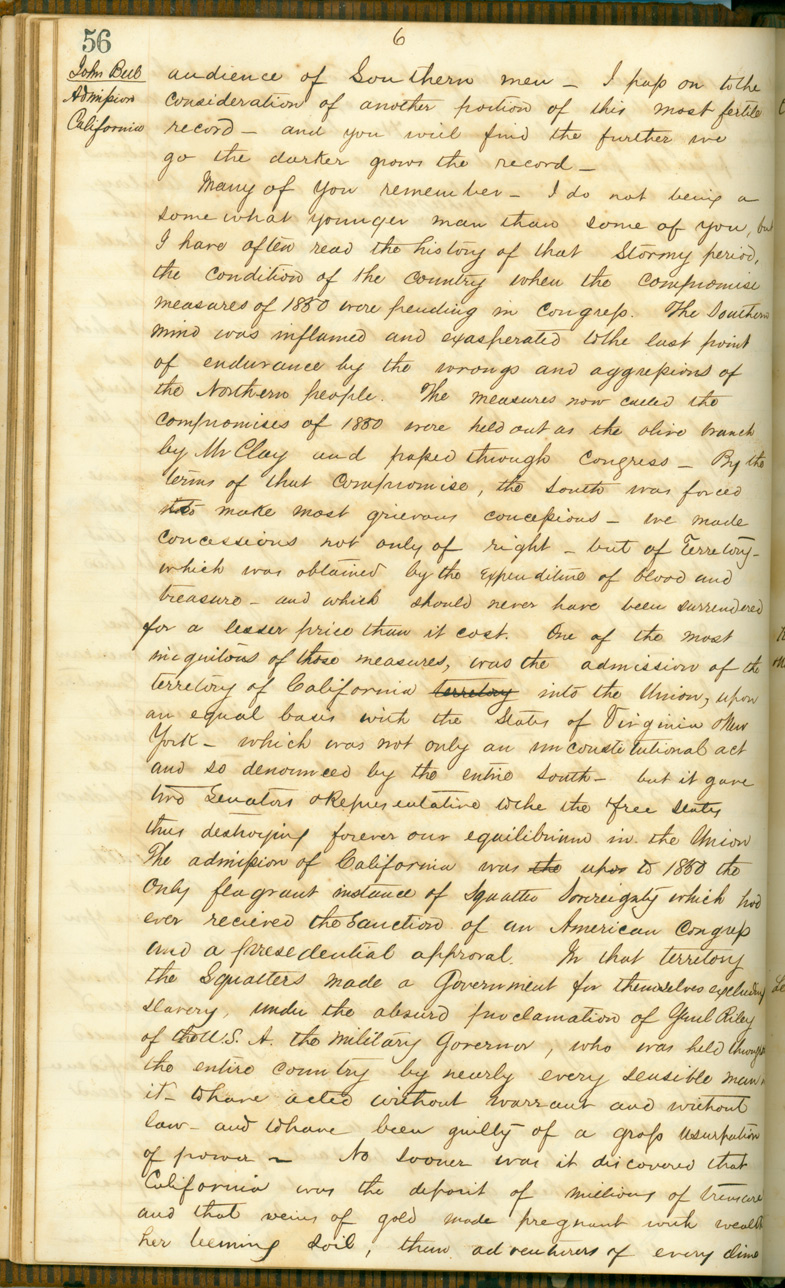 56
6
John Bell
Admission
California
audience of Southern men – I pass on to the
consideration of another portion of this most fertile
record – and you will find the further we
go the darker grows the record –
Many of you remember – I do not being a
somewhat younger man than some of you, but
I have often read the history of that Stormy period,
the condition of the country when the compromise
measures of 1850 were pending in Congress. The Southern
mind was inflamed and exasperated to the last point
of endurance by the wrongs and aggressions of
the Northern people. The measures now called the
Compromises of 1850 were held out as the olive branch
by Mr Clay and passed through Congress – By the
terms of that Compromise, the South was forced
to make most grievous concessions – we made
concessions not only of right – but of Territory –
which was obtained by the expenditure of blood and
treasure – and which should never have been surrendered
for a lesser price than it cost. One of the most
iniquitous of those measures, was the admission of the
territory of California territory into the Union, upon
an equal basis with the States of Virginia & New
York – which was not only an unconstitutional act
and so denounced by the entire South – but it gave
two Senators & Representative to the the free States
thus destroying forever our equilibrium in the Union
The admission of California was the upon to 1850 the
Only flagrant instance of Squatter Sovereignty which had
ever recieved the Sanction of an American Congress
and a Presedential approval. In that territory
the Squatters made a Government for themselves excluding
slavery, under the absurd proclamation of Genl Riley
of the U.S.A. the Military Governor, who was held through
the entire country by nearly every sensible man in
it – to have acted without warrant and without
law – and to have been guilty of a gross usurpation
of power – No sooner was it discovered that
California was the deposit of millions of treasure
and that veins of gold made pregnant with wealth
her teeming soil, than adventurers of every clime